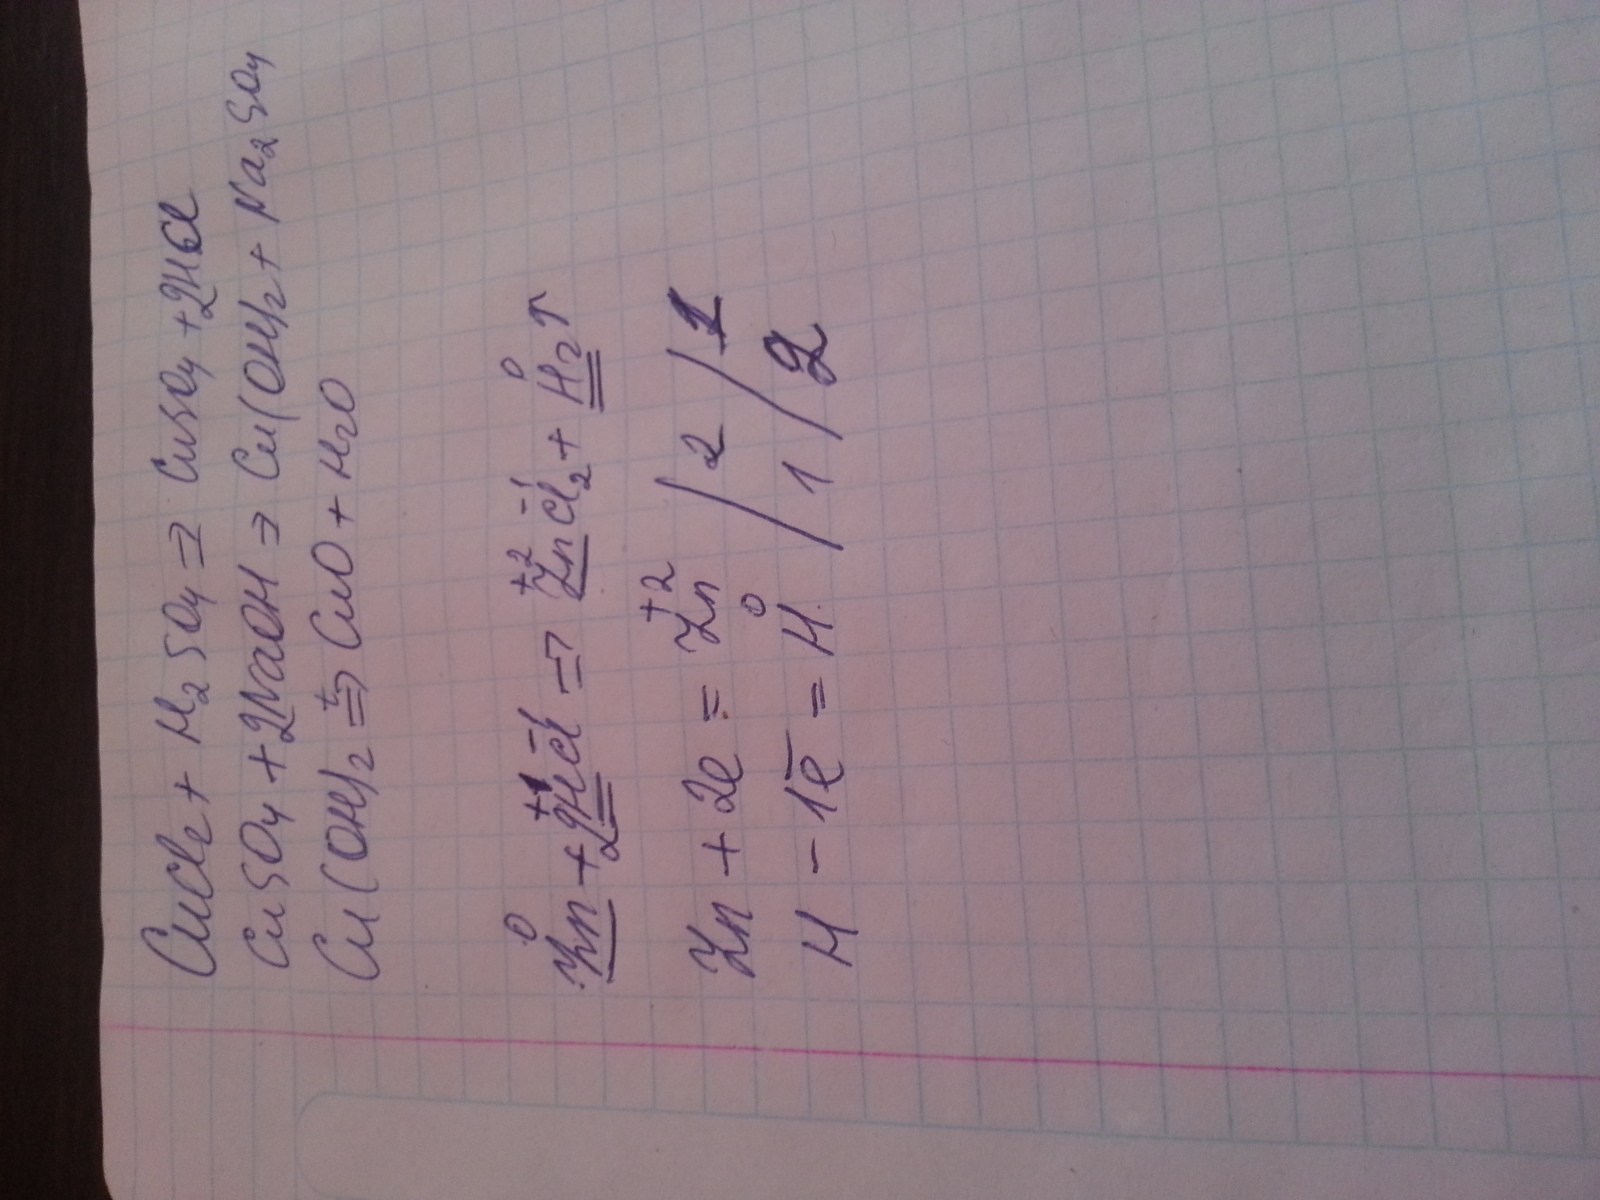 CuCl2 + H2SO4 => CuSO4 + 2HCl
CuSO4 + 2NaOH => Cu(OH)2 + Na2SO4
Cu(OH)2 =t> CuO + H2O
Zn⁰ + 2H⁺¹Cl⁻¹ => Zn⁺²Cl2⁻¹ + H2⁰↑
Zn + 2e = Zn⁺² / 2 / 1
H - 1e̅ = H⁰ / 1 / 2